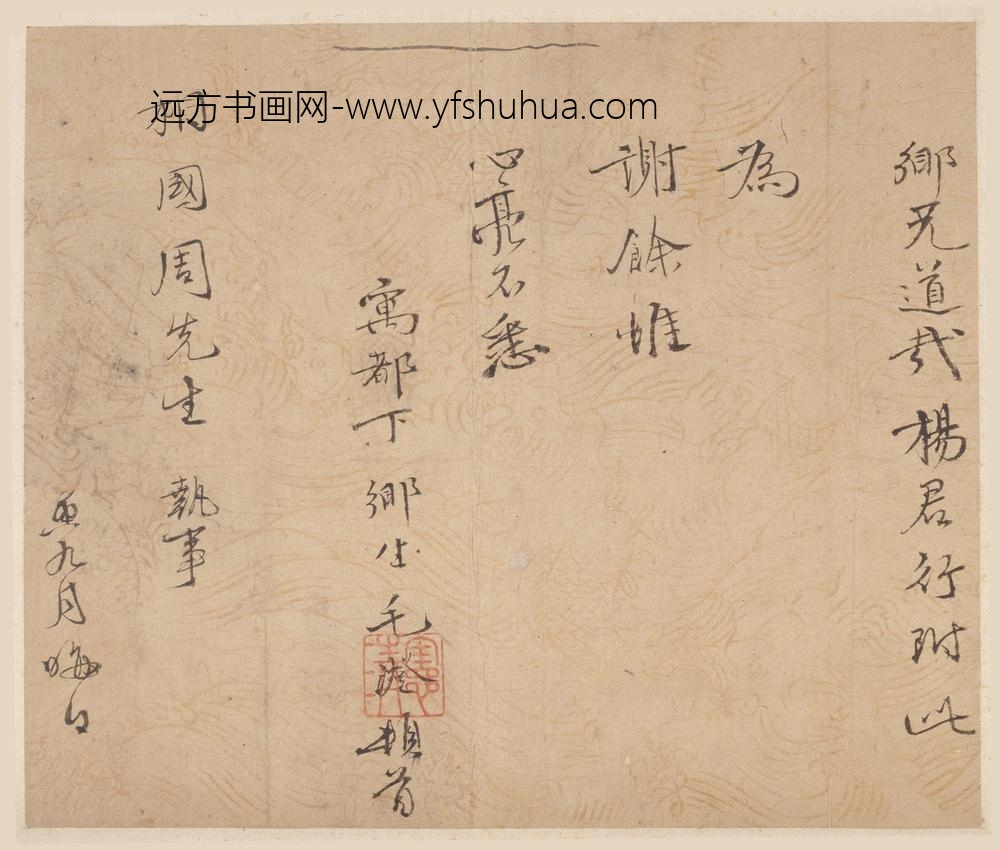 鄉兄道哉楊君行附此
為
謝餘惟
心亮不悉
寓都下鄉生毛澄頓首
桐國周先生 執事
九月晦日
远方书画网-www.yfshuhua.com